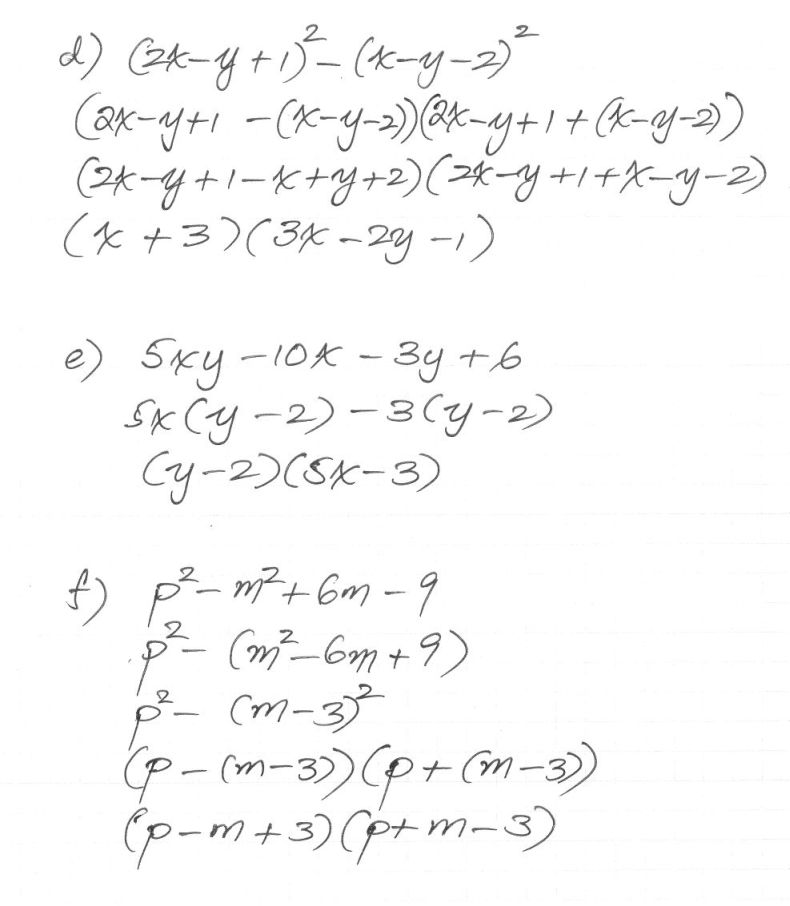 d) (2x-y+1)² - (x-y-2)²
(2x-y+1 -(x-y-2))(2x-y+1+(x-y-2))
(2x-y+1-x+y+2)(2x-y+1+x-y-2)
(x+3)(3x-2y-1)
e) 5xy-10x-3y+6
5x(y-2)-3(y-2)
(y-2)(5x-3)
f) p²-m²+6m-9
p²-(m²-6m+9)
p²-(m-3)²
(p-(m-3))(p+(m-3))
(p-m+3)(p+m-3)